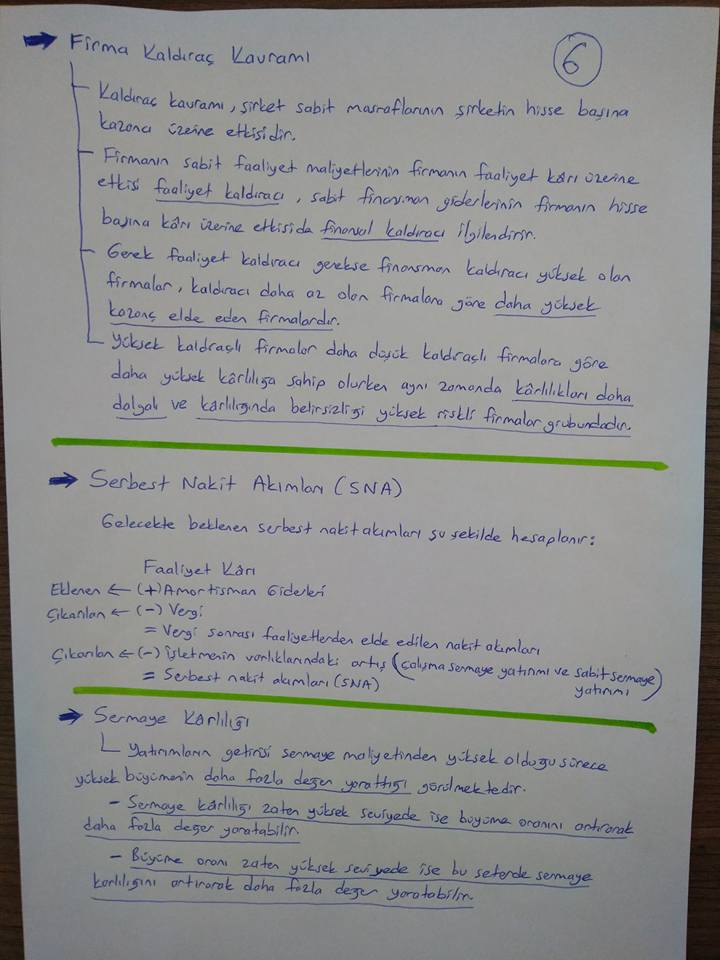 → Firma Kaldıraç Kavramı
6
Kaldıraç kavramı, şirket sabit masraflarının şirketin hisse başına
kazancı üzerine etkisidir.
Firmanın sabit faaliyet maliyetlerinin firmanın faaliyet kârı üzerine
etkisi faaliyet kaldıracı, sabit finansman giderlerinin firmanın hisse
başına kârı üzerine etkiside finansal kaldıracı ilgilendirir.
Gerek faaliyet kaldıracı gerekse finansman kaldıracı yüksek olan
firmalar, kaldıracı daha az olan firmalara göre daha yüksek
kazanç elde eden firmalardır.
Yüksek kaldraçlı firmalar daha düşük kaldıraçlı firmalara göre
daha yüksek kârlılığa sahip olurken aynı zamanda kârlılıkları daha
dalgalı ve kârlılığında belirsizliği yüksek riskli firmalar grubundadır.
→ Serbest Nakit Akımları (SNA)
Gelecekte beklenen serbest nakit akımları şu şekilde hesaplanır:
Faaliyet Kârı
Eklenen ← (+) Amortisman Giderleri
Çıkarılan ← (-) Vergi
= Vergi sonrası faaliyetlerden elde edilen nakit akımları
Çıkarılan ← (-) İşletmenin varlıklarındaki artış (çalışma sermaye yatırımı ve sabit sermaye
yatırımı)
= Serbest nakit akımları (SNA)
→ Sermaye Kârlılığı
Yatırımların getirisi sermaye maliyetinden yüksek olduğu sürece
yüksek büyümenin daha fazla değer yarattığı görülmektedir.
- Sermaye kârlılığı zaten yüksek seviyede ise büyüme oranını artırarak
daha fazla değer yaratabilir.
- Büyüme oranı zaten yüksek seviyede ise bu seferde sermaye
karlılığını artırarak daha fazla değer yaratabilir.